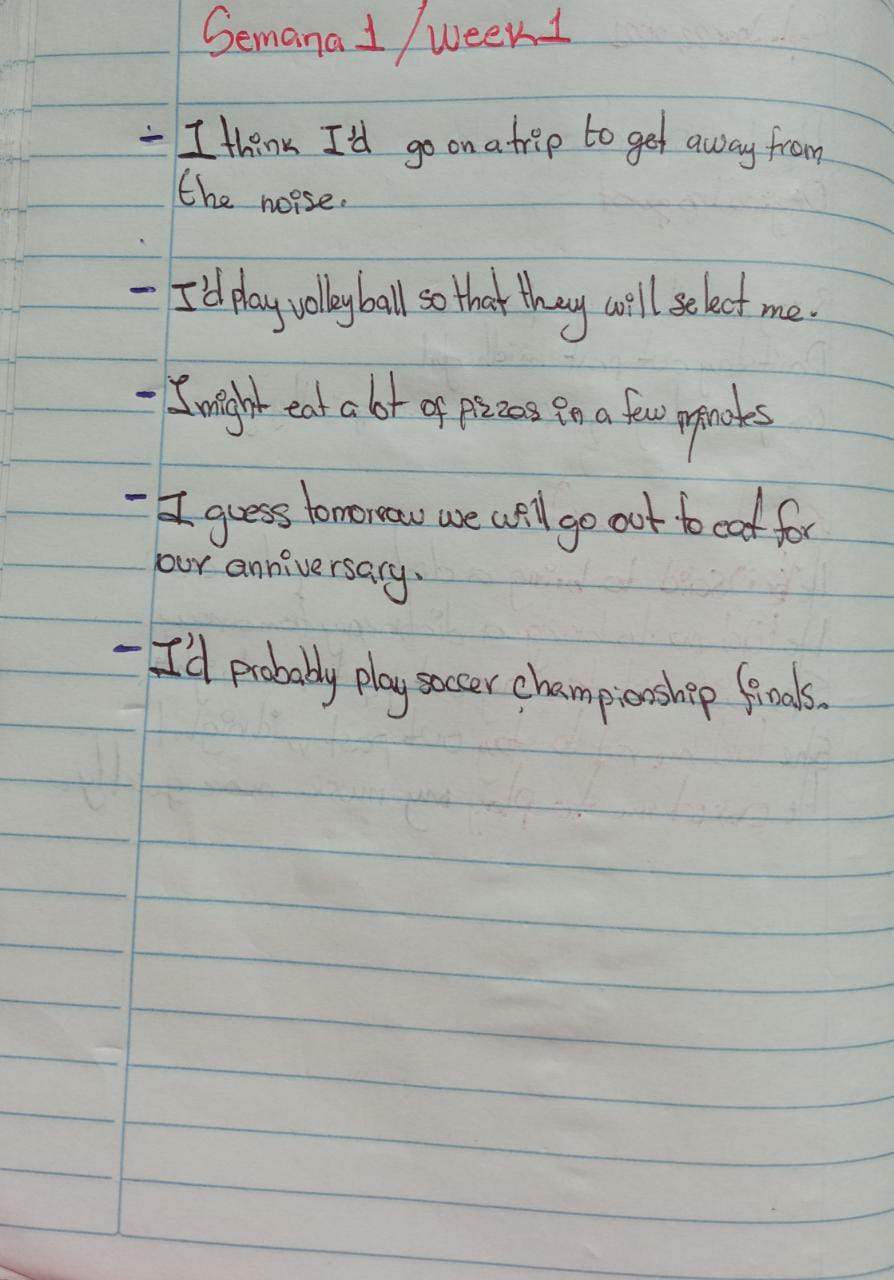 Semana 1 / Week 1
- I think I'd go on a trip to get away from
the noise.
- I'd play volleyball so that they will select me.
- I might eat a lot of pizzas in a few minutes
- I guess tomorrow we will go out to eat for
our anniversary.
- I'd probably play soccer championship finals.